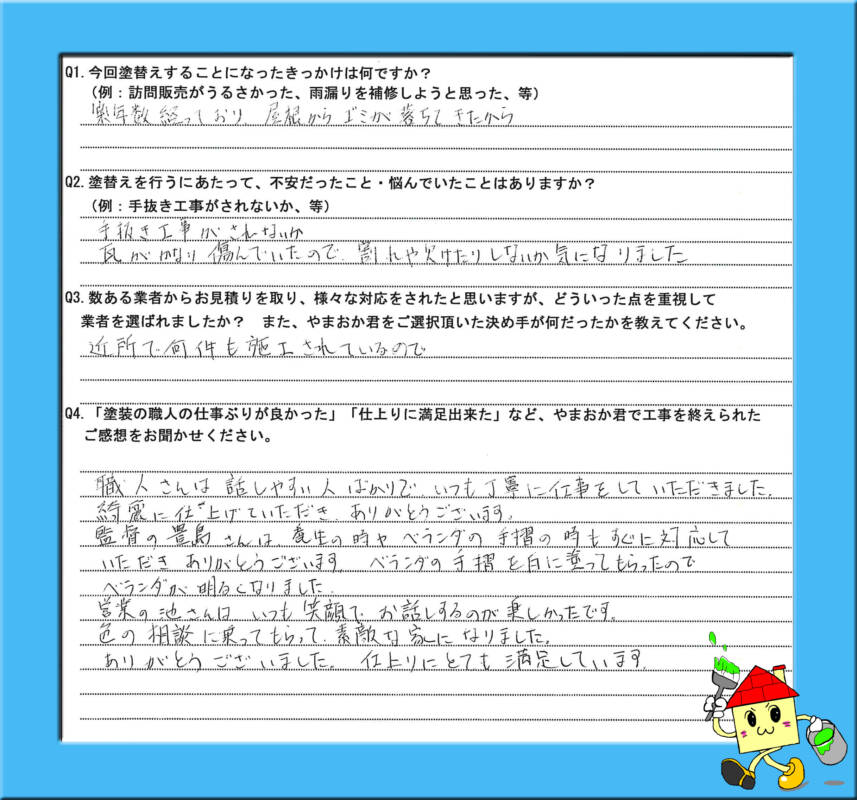 Q1. 今回塗替えすることになったきっかけは何ですか？
（例：訪問販売がうるさかった、雨漏りを補修しようと思った、等）
築年数 経っており、屋根から ゴミが 落ちて きたから
Q2. 塗替えを行うにあたって、不安だったこと・悩んでいたことはありますか？
（例：手抜き工事がされないか、等）
手抜き工事がされないか
瓦がかなり 傷んでいたので、割れや欠けたりしないか気になりました
Q3. 数ある業者からお見積りを取り、様々な対応をされたと思いますが、どういった点を重視して
業者を選ばれましたか？　また、やまおか君をご選択頂いた決め手が何だったかを教えてください。
近所で何件も施工されているので
Q4. 「塗装の職人の仕事ぶりが良かった」「仕上りに満足出来た」など、やまおか君で工事を終えられた
ご感想をお聞かせください。
職人さんは 話しやすい人ばかりで、いつも丁寧に仕事をしていただきました。
綺麗に仕上げていただき、ありがとうございます。
監督の豊島さんは 養生の時や ベランダの手摺の時もすぐに対応して
いただき ありがとうございます。 ベランダの手摺を白に塗ってもらったので
ベランダが明るくなりました。
営業の池さんは いつも笑顔で お話しするのが楽しかったです。
色の相談に乗ってもらって、素敵な家になりました。
ありがとうございました。 仕上りにとても満足しています。